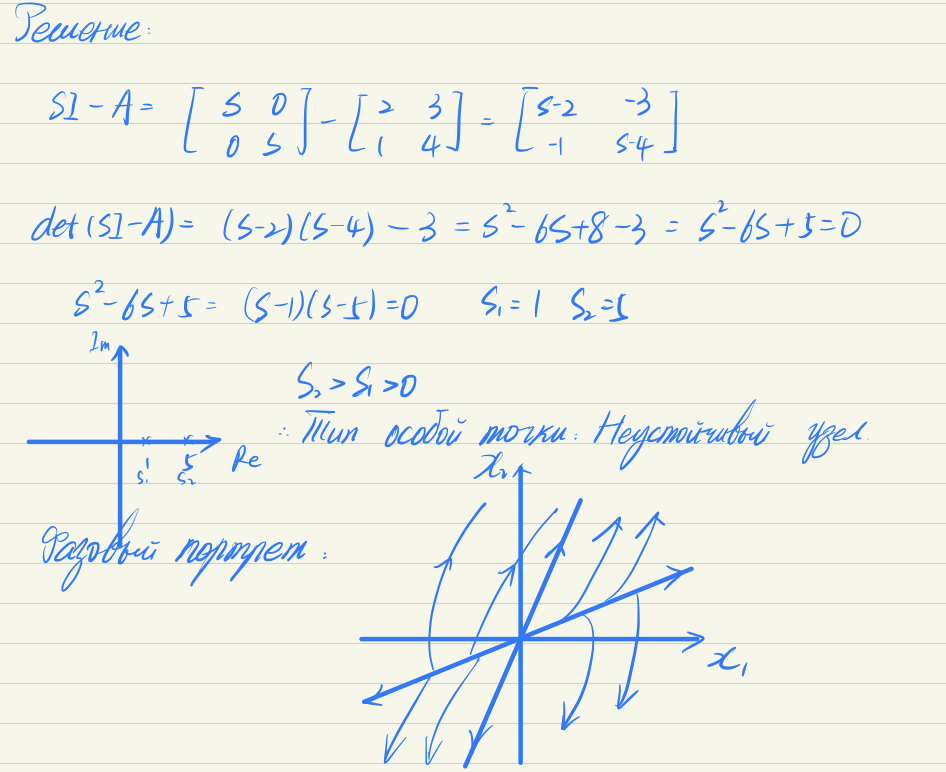 Решение:
SI - A = [ S 0 0 S ] - [ 2 3 1 4 ] = [ S-2 -3 -1 S-4 ]
det(SI-A) = (S-2)(S-4) - 3 = S² - 6S + 8 - 3 = S² - 6S + 5 = 0
S² - 6S + 5 = (S-1)(S-5) = 0 S₁ = 1 S₂ = 5
Im
S₂ > S₁ > 0
∴ Тип особой точки: Неустойчивый узел.
1 5 Re
S₁ S₂
x₂
Фазовый портрет:
x₁